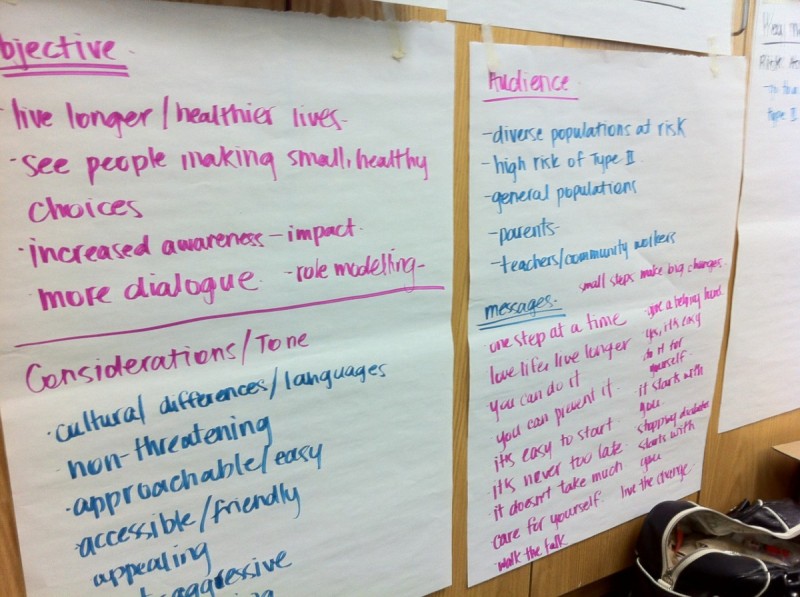 bjective
live longer/healthier lives
· see people making small, healthy
choices
· increased awareness - impact.
more dialogue. - role modelling -
Considerations/Tone
· cultural differences/languages
non-threatening
· approachable/easy
accessible/friendly
appealing
aggressive
Audience
- diverse populations at risk
- high risk of Type II
- general populations
- parents
- teachers/community workers
small steps make big changes.
messages.
one step at a time
love life: live longer
· you can do it
you can prevent it.
it's easy to start.
it's never too late.
it doesn't take much
care for yourself.
walk the talk
give a helping hand.
yes, it's easy
do it for
yourself.
it starts with
you.
stopping diabetes
starts with
you
live the change.
Type II